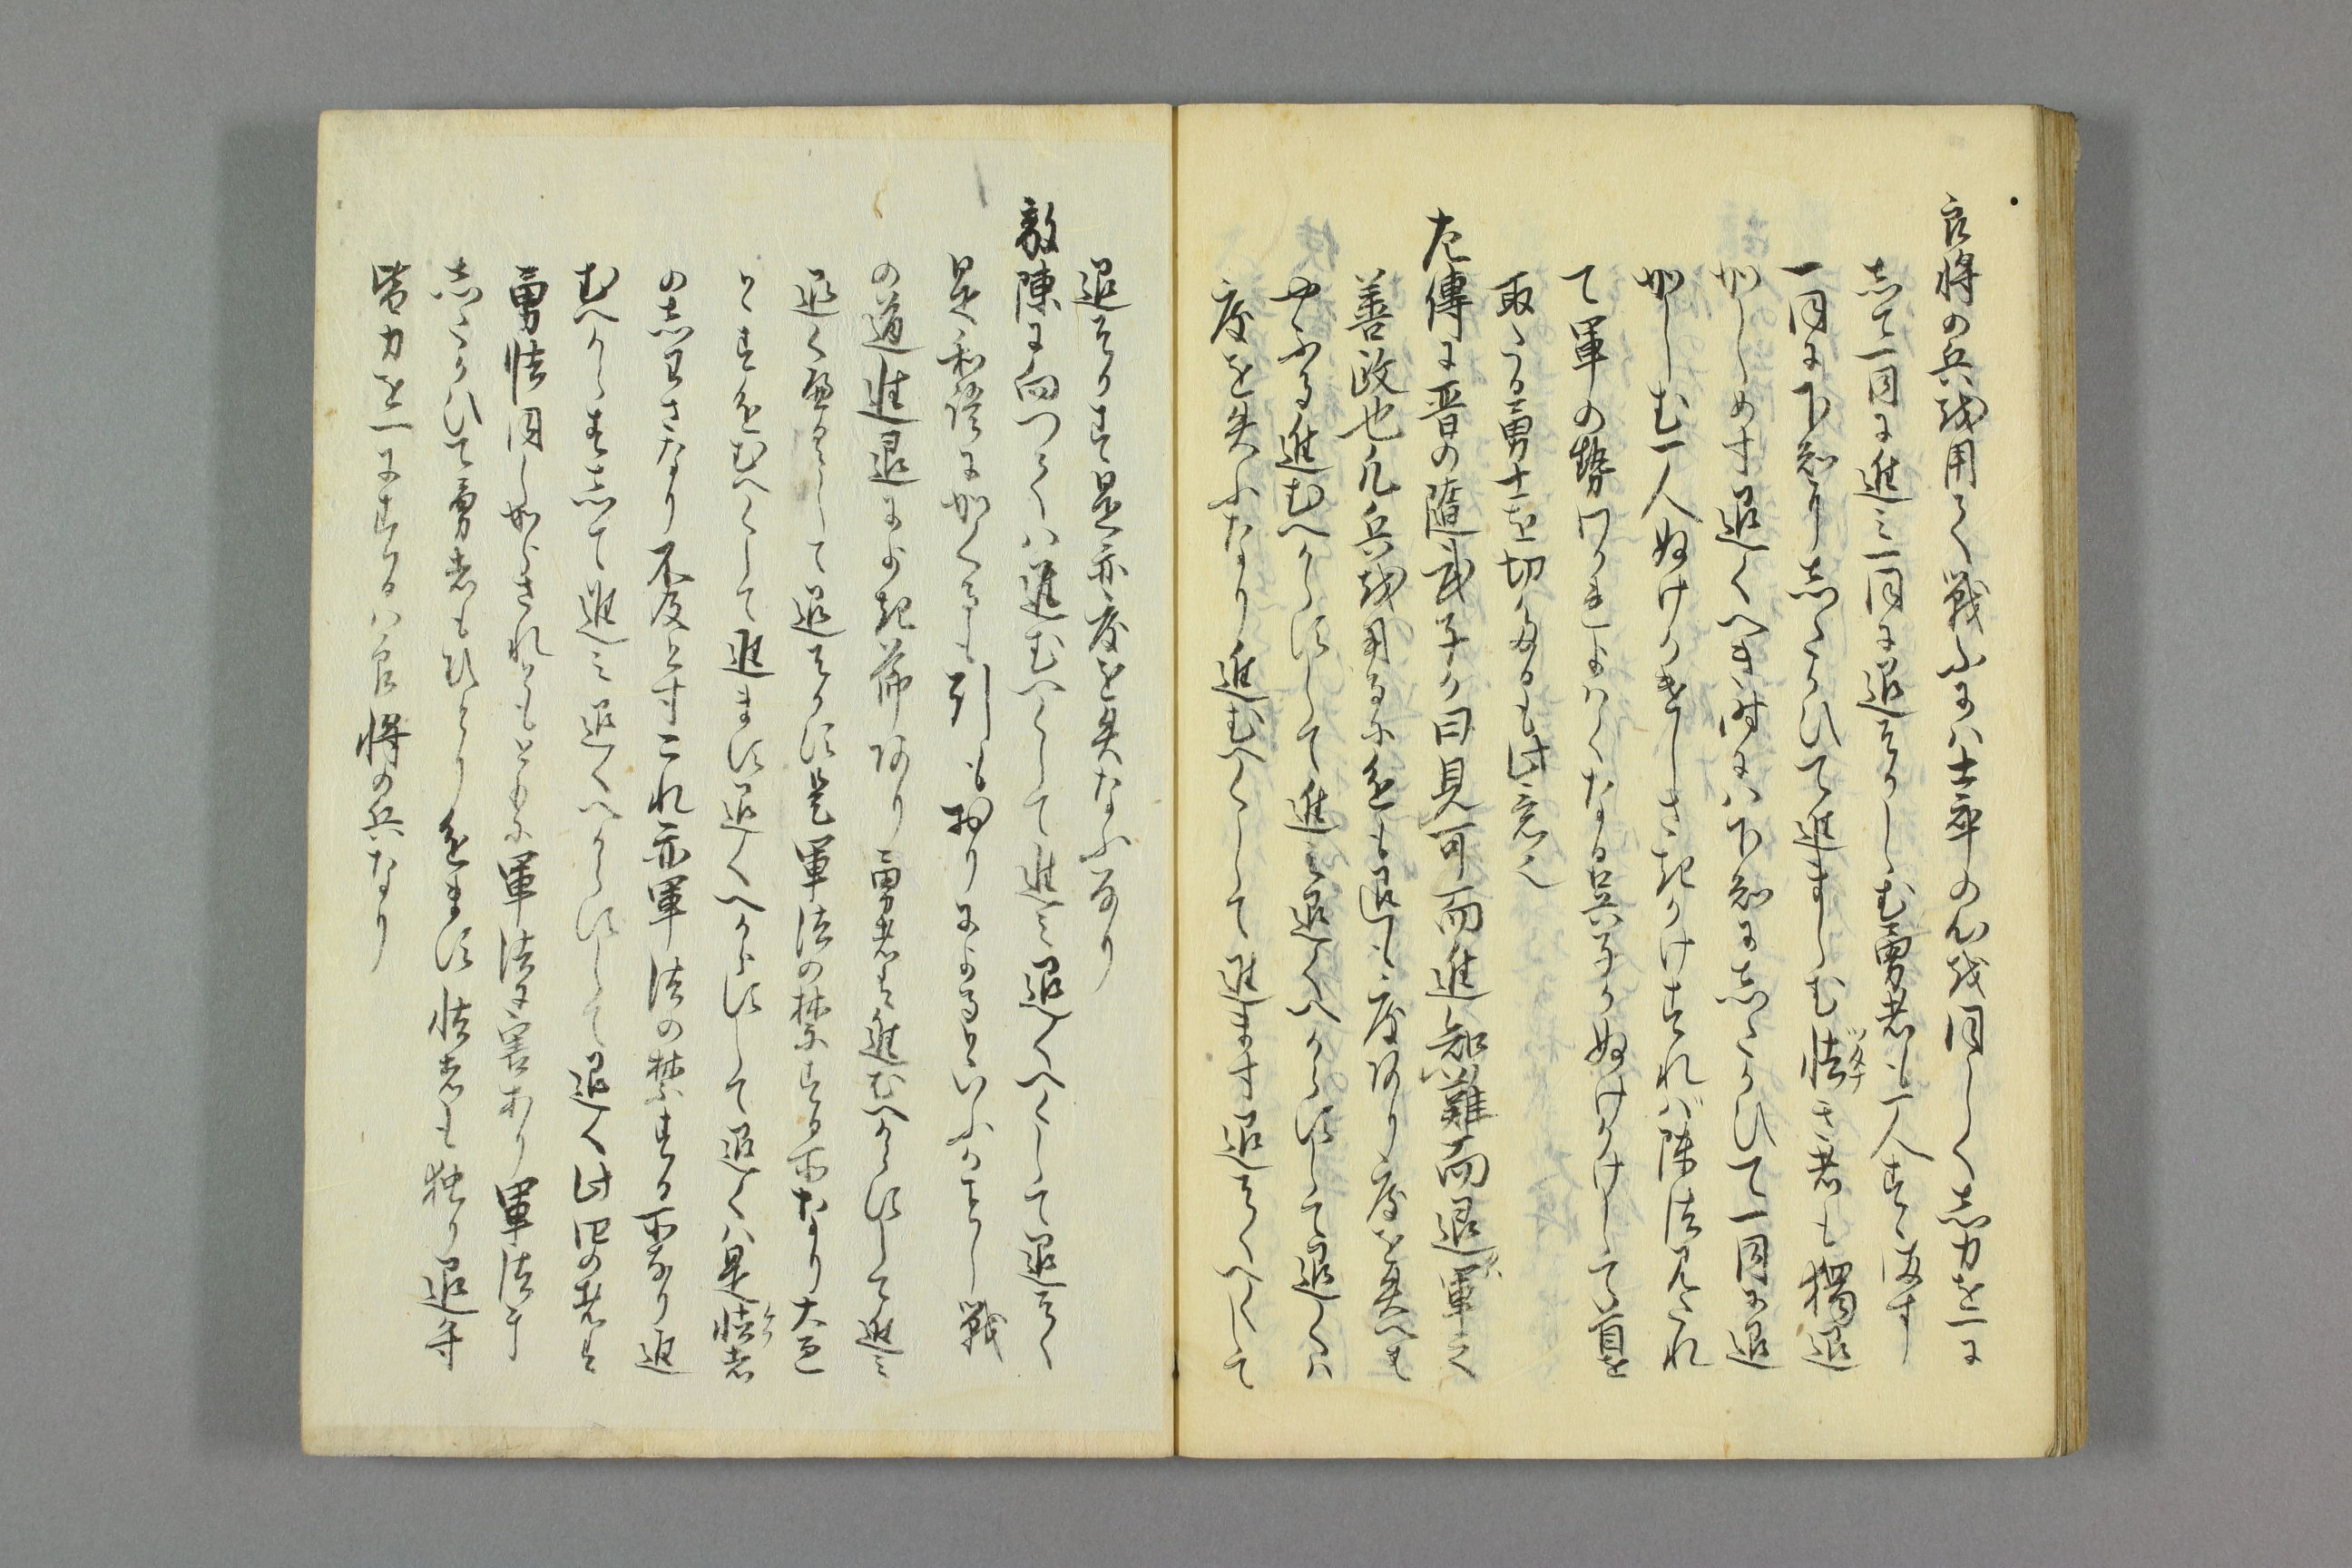 良将の兵越用て戦ふには士卒の心越同しく志力を一に
志て一同に進ミ一同に退そかしむ勇者も一人すゝます
一同に下知にしたかひて進ましむ怯き者も獨退
かしめす退くへき時には下知にしたかひて一同に退
かしむ一人ぬけかきしさきかけすれバ陣法みたれ
て軍の勢
わかれよはくなる兵子かぬけかけして首を
取たる勇士を切たるも此意也
左傳に晋の隨武子か曰見可而進知難而退軍之
善政也凡兵越用るに進も退も度あり度を失へハ
やふる進むへからすして進ミ退くへからすして退くハ
度を失ふなり進むへくして進ます退そくへくして
退そかす是亦度を失なふなり
敵陳に向つてハ進むへくして進ミ退くへくして退そく
是和語にかくるも引も折りによるといふかことし戦
の道進退によき節あり勇者は進むへからすして進ミ
退くへくして退そかす是軍法の禁する所なり大臆
とすゝむへくして進ます退くへからすして退くハ是怯者
の志わさなり不及とすこれ亦軍法の禁する所なり進
むへからすして進ミ退くへからすして退く此四の者は
勇怯同しからされともともに軍法に害あり軍法に
したかひて勇者もひとりすゝます怯者も独り退す
皆力を一にするハ良将の兵なり